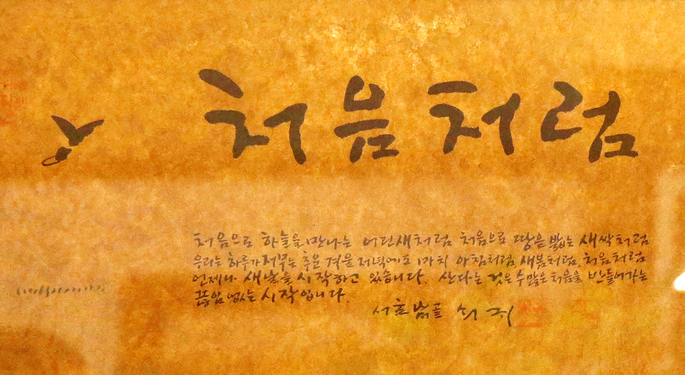 처음처럼
처음으로 하늘을 만나는 어린새처럼 처음으로 땅을 밟는 새싹처럼
우리는 하루가 저무는 추운 겨울 저녁에도 마치 아침처럼, 새봄처럼, 처음처럼
언제나 새날을 시작하고 있습니다. 산다는 것은 수많은 처음을 만들어가는
끊임없는 시작입니다.
서호